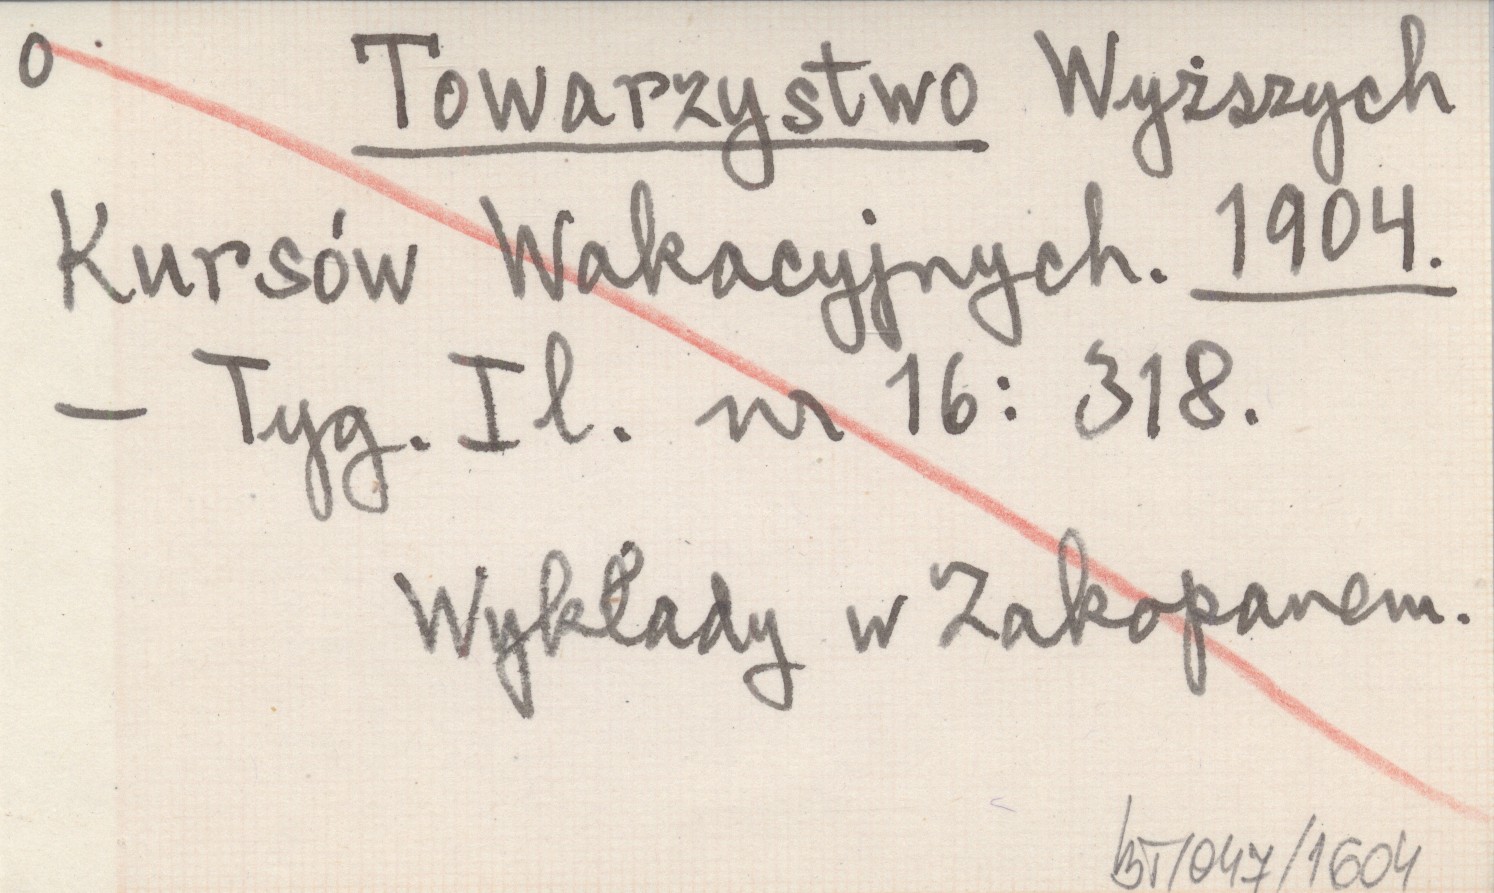 o Towarzystwo Wyższych
Kursów Wakacyjnych. 1904.
– Tyg. Il. nr 16: 318.
Wykłady w Zakopanem.
BT/047/1604